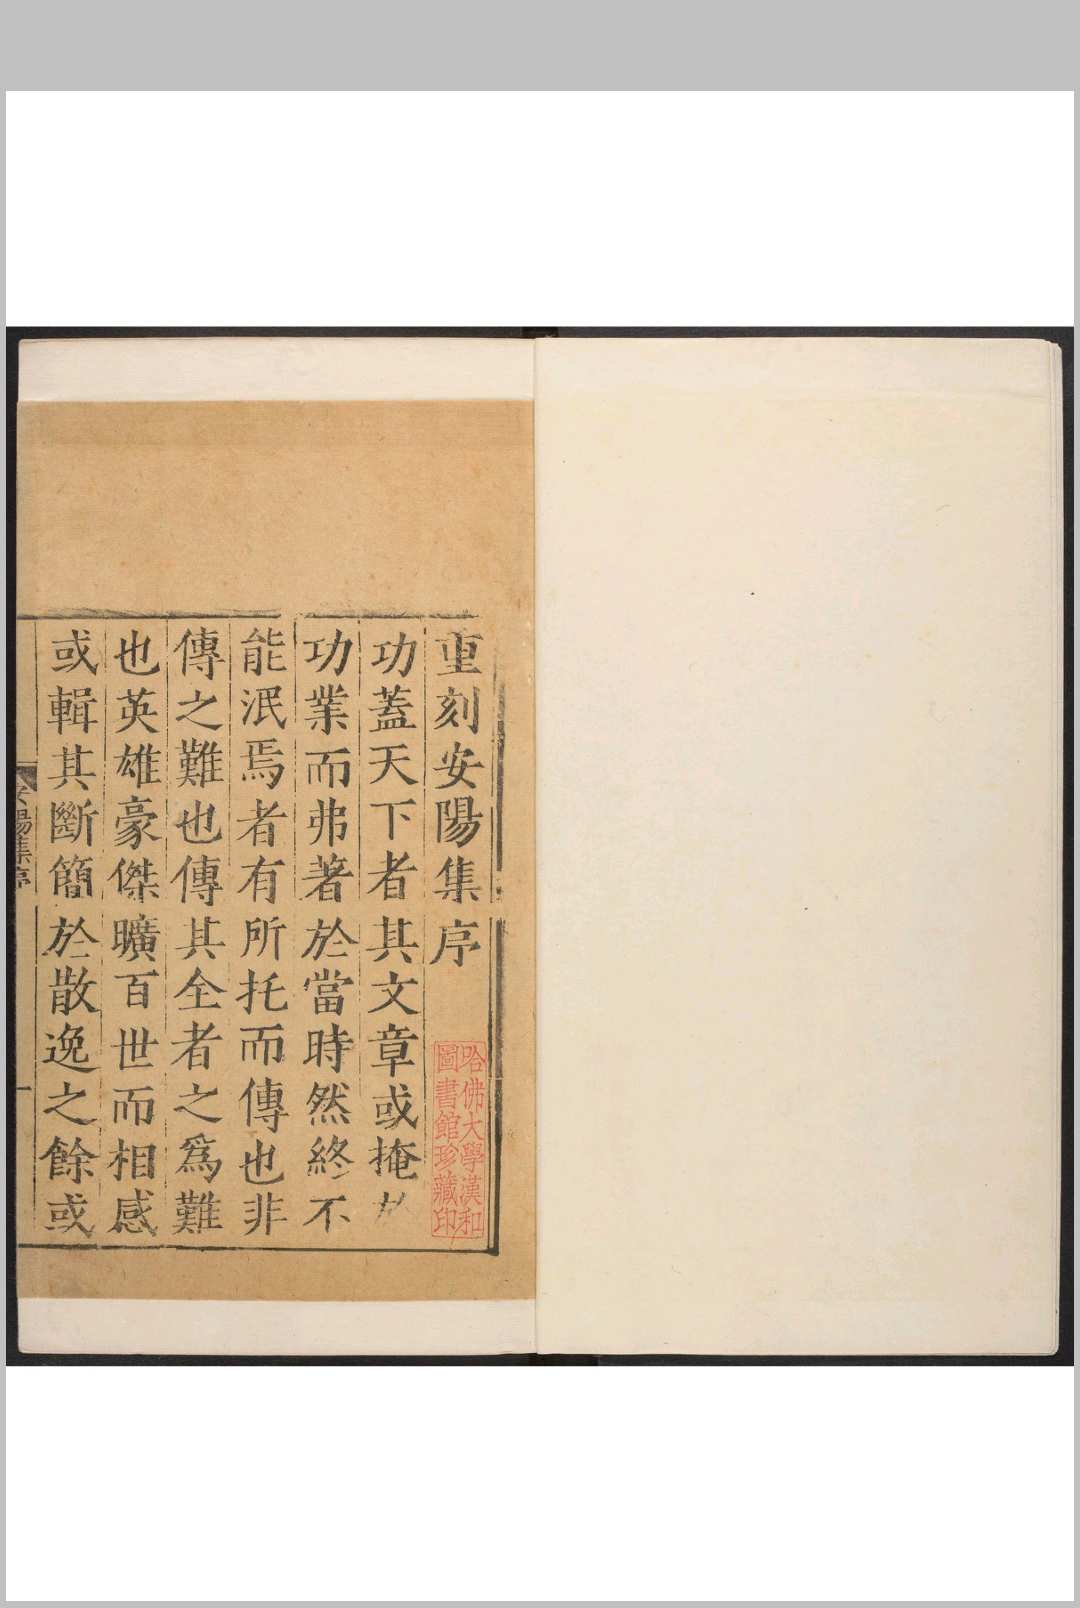 重刻安陽集序
功蓋天下者其文章或掩於
功業而弗著於當時然終不
能泯焉者有所托而傳也非
傳之難也傳其全者之爲難
也英雄豪傑曠百世而相感
或輯其斷簡於散逸之餘或
安陽集序
一
哈佛大學漢和
圖書館珍藏印